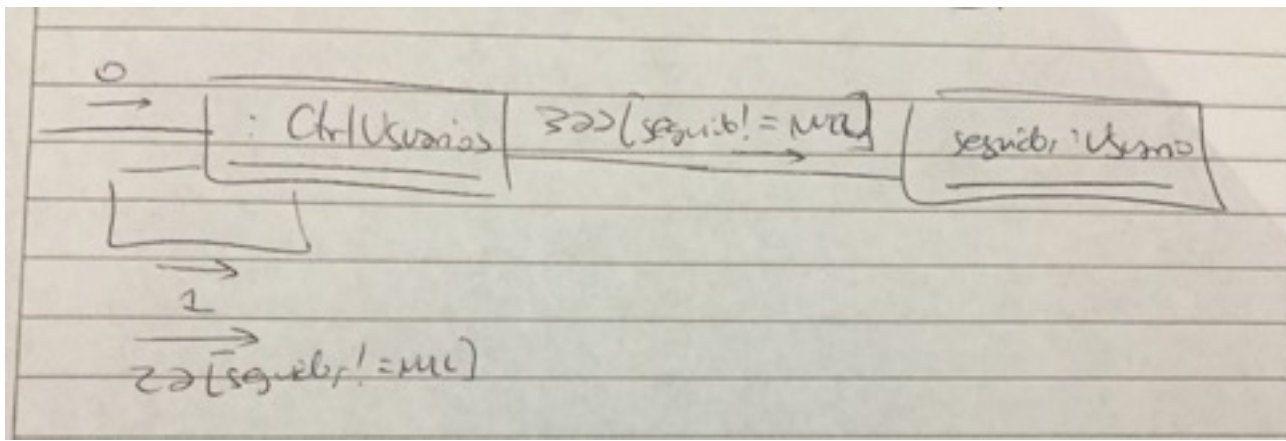 0
: CtrlUsuarios
[seguid! = NULL]
seguido, : Usuario
1
2a [seguido,! = NULL]